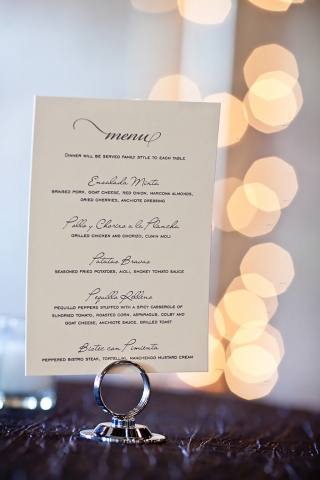 menu
DINNER WILL BE SERVED FAMILY STYLE TO EACH TABLE
Ensalada Mixta
BRAISED PORK, GOAT CHEESE, RED ONION, MARCONA ALMONDS,
DRIED CHERRIES, ANCHIOTE DRESSING
Pollo y Chorizo a la Plancha
GRILLED CHICKEN AND CHORIZO, CUMIN AIOLI
Patatas Bravas
SEASONED FRIED POTATOES, AIOLI, SMOKEY TOMATO SAUCE
Pequillo Relleno
PEQUILLO PEPPERS STUFFED WITH A SPICY CASSEROLE OF
SUNDRIED TOMATO, ROASTED CORN, ASPARAGUS, COLBY AND
GOAT CHEESE, ANCHIOTE SAUCE, GRILLED TOAST
Bistec con Pimienta
PEPPERED BISTRO STEAK, TORTELLINI, MANCHENGO MUSTARD CREAM